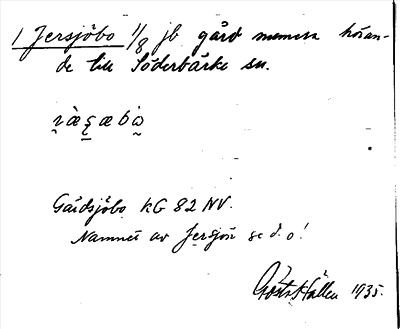 1 Jersjöbo 1/8 jb gård numera höran-
de till Söderbärke sn.
Gårdsjöbo kG 82 NV.
Namnet av Jersjön se d. o!
Gösta Hållen 1935.